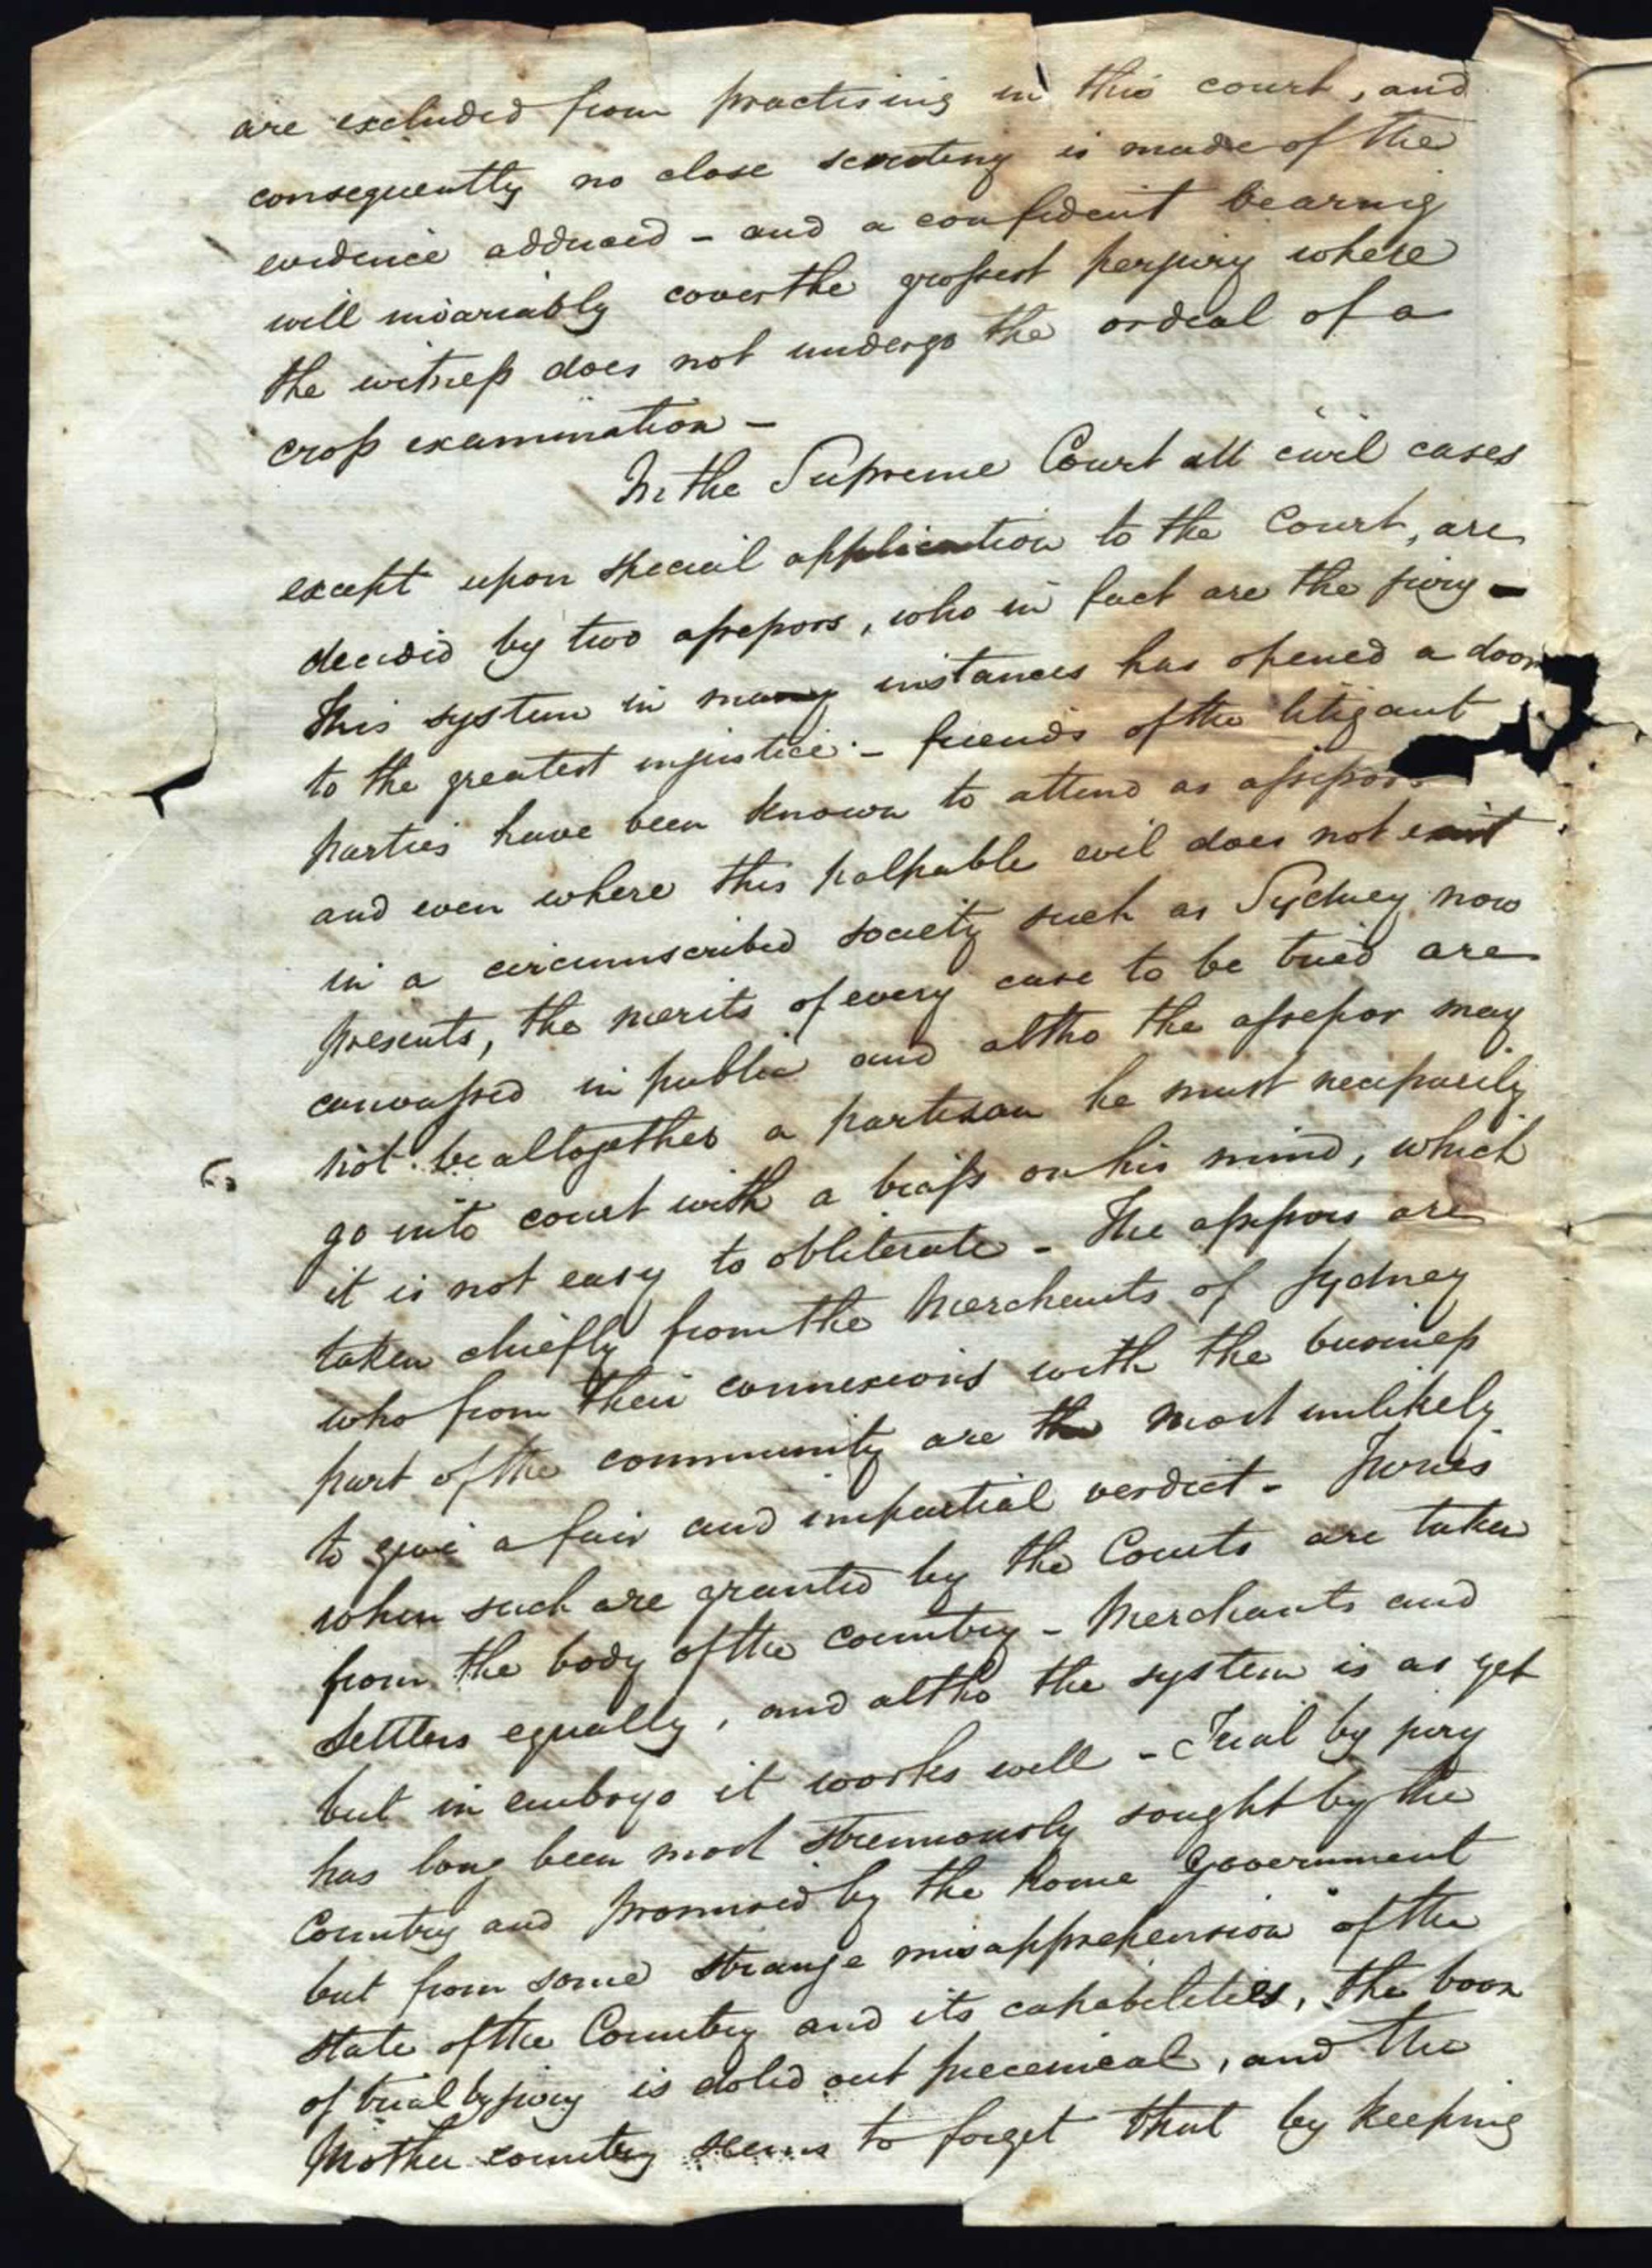 are excluded from practising in this court, and
consequently no close scrutiny is made of the
evidence adduced - and a confident bearing
will invariably cover the grossest perjury where
the witness does not undergo the ordeal of a
cross examination -
In the Supreme Court all civil cases
except upon special application to the Court, are
decided by two assessors, who in fact are the jury -
This system in many instances has opened a door
to the greatest injustice - friends of the litigant
parties have been known to attend as assessors
and even where this palpable evil does not exist
in a circumscribed society such as Sydney now
presents, the merits of every case to be tried are
canvassed in public and altho the assessor may
not be altogether a partisan he must necessarily
go into court with a biass on his mind, which
it is not easy to obliterate - The assessors are
taken chiefly from the Merchants of Sydney
who from their connexions with the business
part of the community are the most unlikely
to give a fair and impartial verdict - Juries
when such are granted by the Courts are taken
from the body of the country - Merchants and
Settlers equally, and altho the system is as yet
but in embryo it works well - Trial by jury
has long been most strenuously sought by the
Country and promised by the home Government
but from some strange misapprehension of the
state of the Country and its capabilities, the boon
of trial by jury is doled out piecemeal, and the
Mother country seems to forget that by keeping